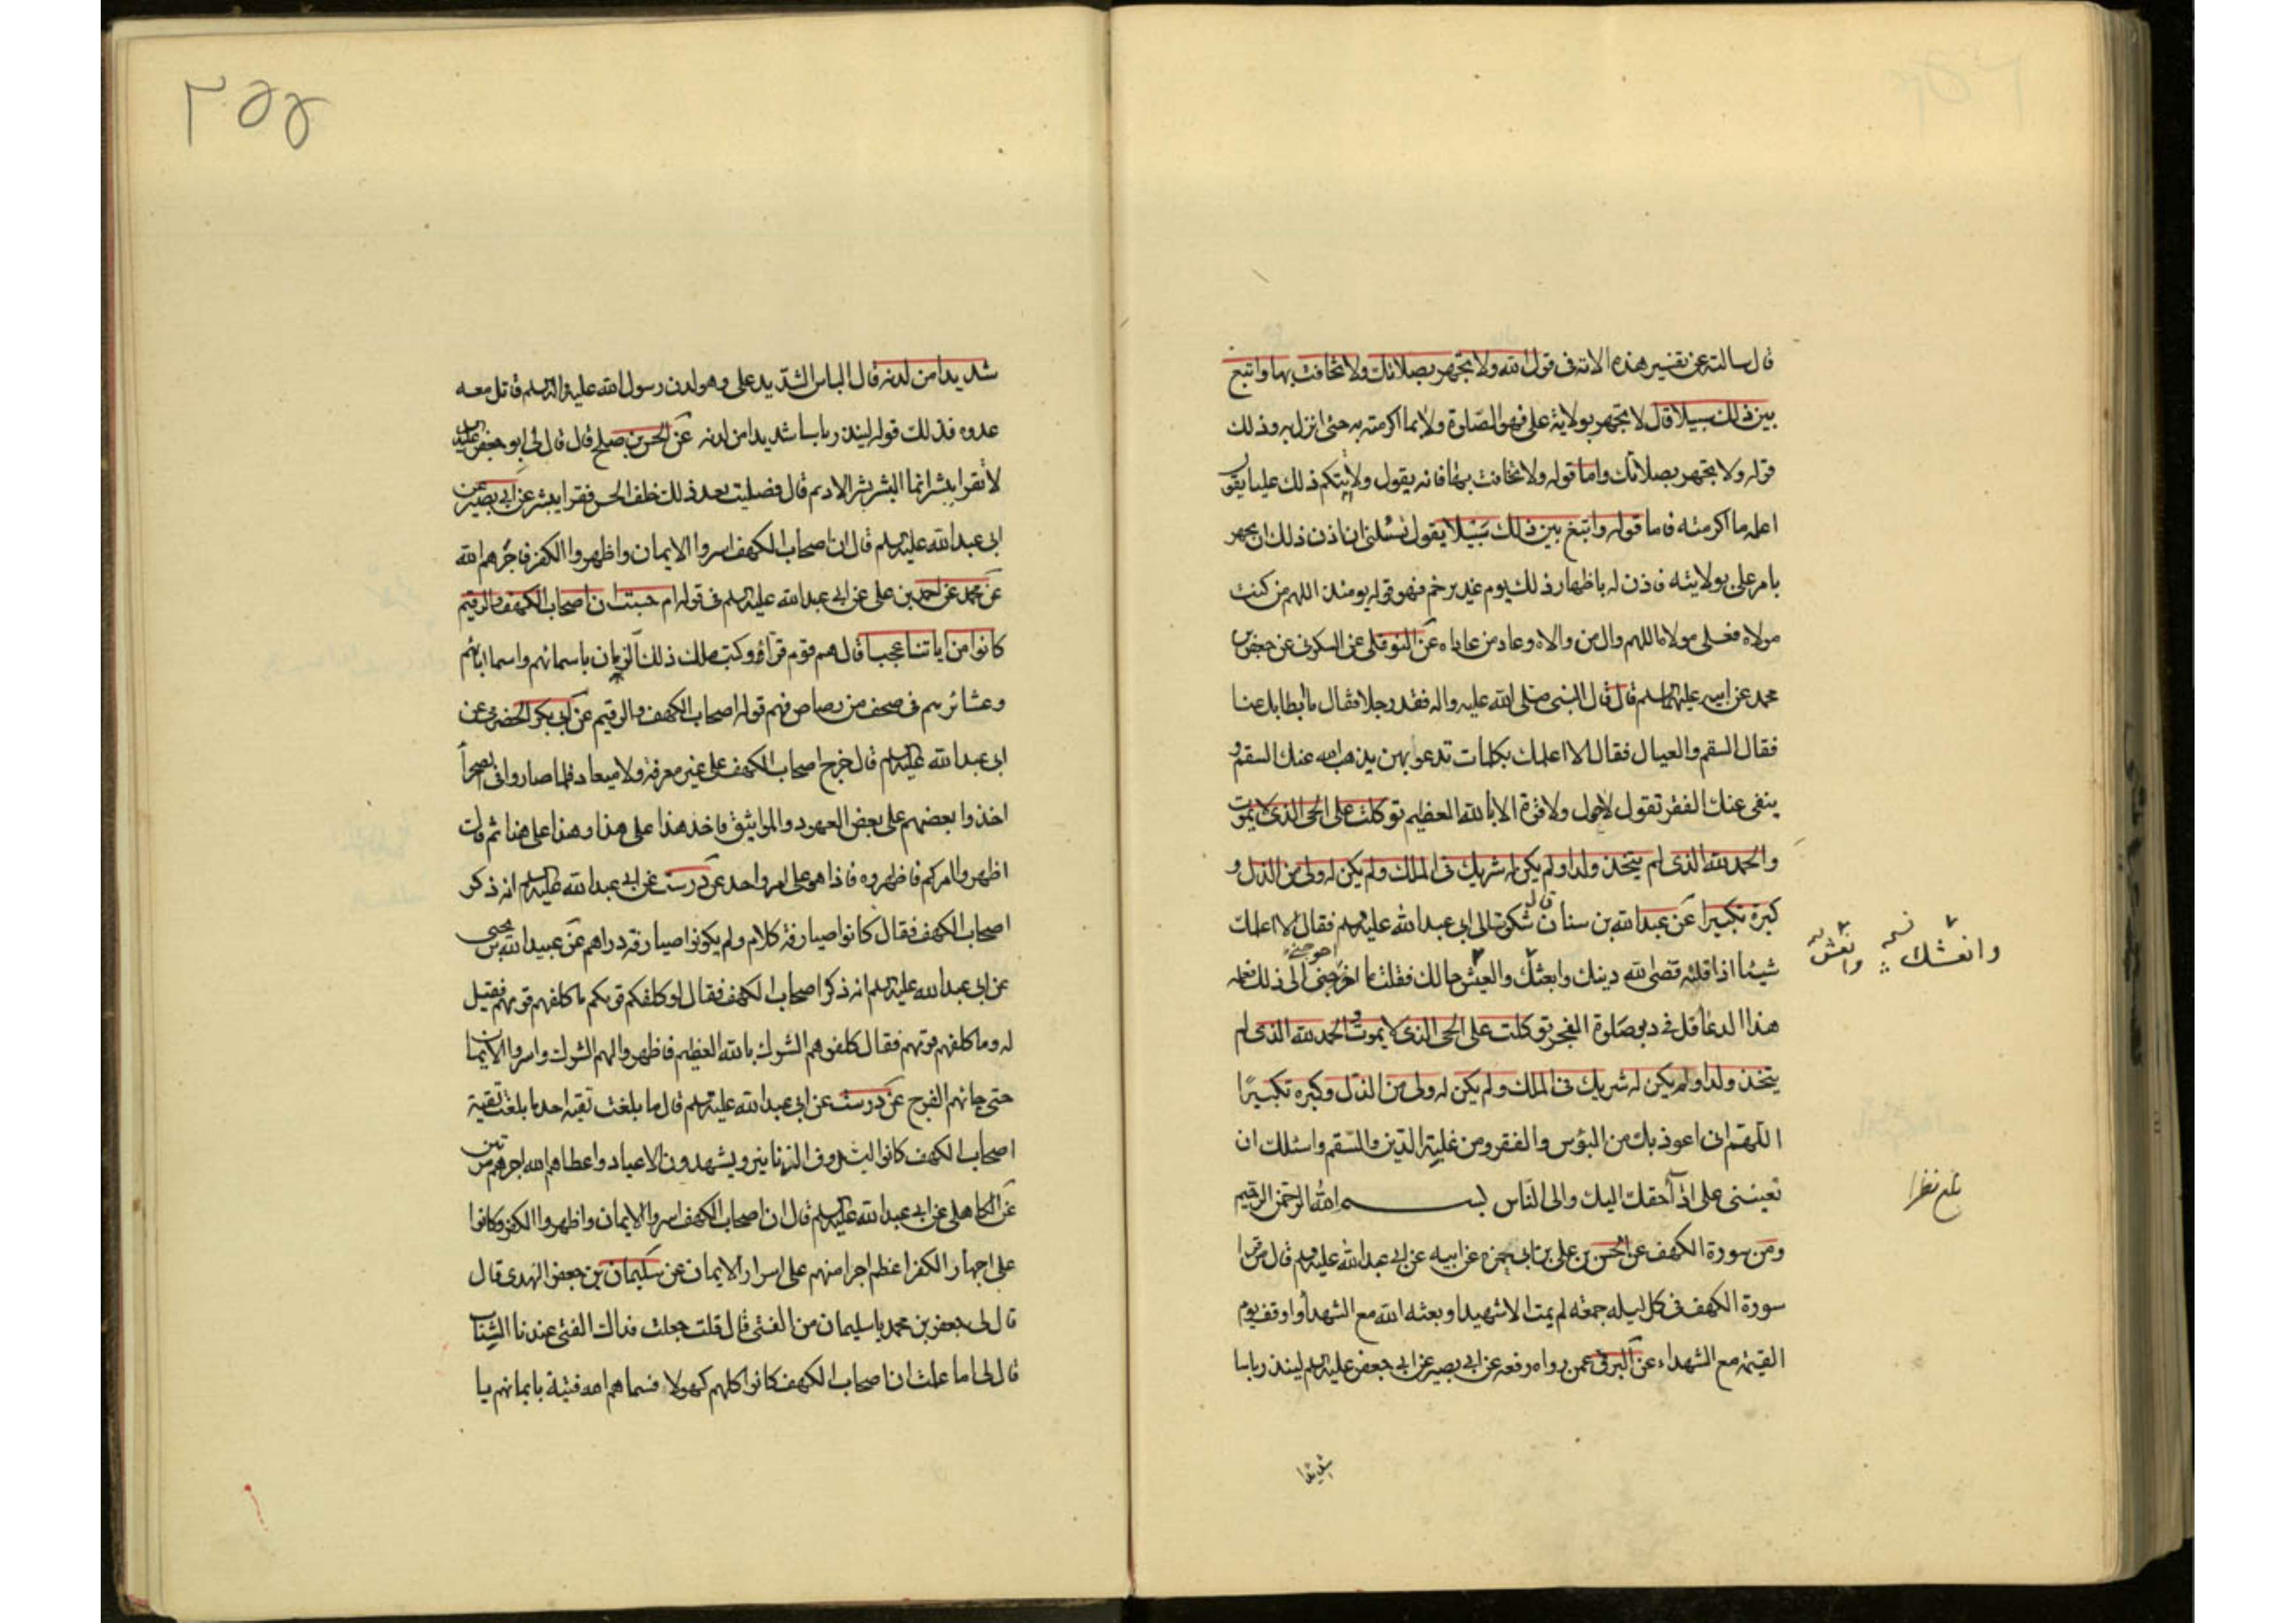 قال سالته عن تفسير هذه الاية فى قول الله ولا تجهر بصلاتك ولا تخافت بها وابتغ
بين ذلك سبيلا قال لا تجهر بولاية على فهو الصلوة ولا بما اكرمته به حتى انزل به وذلك
قوله ولا تجهر بصلاتك واما قوله ولا تخافت بها فانه يقول ولا تكتم ذلك عليا يقول
اعلمه ما اكرمته فاما قوله وابتغ بين ذلك سبيلا يقول تسئلنى ان اذن ذلك ان تجهر
بامر على بولايته فاذن له باظهار ذلك يوم غدير خم فهو قوله يومئذ اللهم من كنت
مولاه فعلى مولاه اللهم وال من والاه وعاد من عاداه عن النوفلى عن السكونى عن جعفر بن
محمد عن ابيه عليهما السلم قال قال النبى صلى الله عليه واله فقد رجلا فقال ما ابطا بك عنا
فقال السقم والعيال فقال الا اعلمك بكلمات تدعو بهن يذهب الله عنك السقم و
ينفى عنك الفقر تقول لا حول ولا قوة الا بالله العظيم توكلت على الحى الذى لا يموت
والحمد لله الذى لم يتخذ ولدا ولم يكن له شريك فى الملك ولم يكن له ولى من الذل و
كبره تكبيرا عن عبد الله بن سنان قال شكوت الى ابى عبد الله عليه السلم فقال الا اعلمك
شيئا اذا قلته قضى الله دينك وانعشك والعيش حالك فقلت ما احوجنى الى ذلك فعلمه
هذا الدعا قل فى دبر صلوة الفجر توكلت على الحى الذى لا يموت و الحمد لله الذى لم
يتخذ ولدا ولم يكن له شريك فى الملك ولم يكن له ولى من الذل وكبره تكبيرًا
اللهم انى اعوذ بك من البؤس والفقر ومن غلبة الدين والسقم واسئلك ان
تعيننى على اداء حقك اليك والى الناس بسم الله الرحمن الرحيم
ومن سورة الكهف عن الحسن بن على بن ابى حمزه عن ابيه عن ابى عبد الله عليه السلم قال من قرا
سورة الكهف فى كل ليله جمعه لم يمت الا شهيدا وبعثه الله مع الشهدا واوقف يوم
القيمة مع الشهداء عن البرقى عمن رواه رفعه عن ابى بصير عن ابى جعفر عليه السلم لينذر باسا
وانعشك نسخه
وانعش
بلغ نظرا
شديدا
٢٥٥
شديدا من لدنه قال الباس الشديد على وهو لدن رسول الله عليه واله السلم قاتل معه
عدوه فذلك قوله لينذر باسا شديدا من لدنه عن الحسن بن صلح قال قال لى ابو جعفر عليه السلم
لا تقرا يبشر انما البشر بشر الاديم قال فصليت بعد ذلك خلف الحسن فقرا يبشر عن ابى بصير عن
ابى عبد الله عليه السلم قال ان اصحاب الكهف اسروا الايمان واظهروا الكفر فاجرهم الله
عن محمد عن احمد بن على عن ابى عبد الله عليه السلم فى قوله ام حسبت ان اصحاب الكهف والرقيم
كانوا من اياتنا عجبا قال هم قوم فروا وكتب ملك ذلك الزمان باسمائهم واسما ابائهم
وعشائرهم فى صحف من رصاص فهم قوله اصحاب الكهف والرقيم عن ابى بكر الحضرمى عن
ابى عبد الله عليه السلم قال خرج اصحاب الكهف على غير معرفة ولا ميعاد فلما صاروا فى الصحرا
اخذوا بعضهم على بعض العهود والمواثيق فاخذ هذا على هذا وهذا على هذا ثم قالت
اظهروا امركم فاظهروه فاذا هم على امر واحد عن درست عن ابى عبد الله عليه السلم انه ذكر
اصحاب الكهف فقال كانوا صيارفة كلام ولم يكونوا صيارفة دراهم عن عبيد الله بن يحيى
عن ابى عبد الله عليه السلم انه ذكر اصحاب الكهف فقال لو كلفكم قومكم ما كلفهم قومهم فقيل
له وما كلفهم قومهم فقال كلفوهم الشرك بالله العظيم فاظهروا لهم الشرك واسروا الايمان
حتى جائهم الفرج عن درست عن ابى عبد الله عليه السلم قال ما بلغت تقيه احد ما بلغت تقية
اصحاب الكهف كانوا ليشدون الزنانير ويشهدون الاعياد واعطاهم الله اجرهم مرتين
عن الكاهلى عن ابى عبد الله عليه السلم قال ان اصحاب الكهف اسروا الايمان واظهروا الكفر وكانوا
على اجهار الكفر اعظم اجرا منهم على اسرار الايمان عن سليمان بن جعفر النهدى قال
قال لى جعفر بن محمد يا سليمان من الفتى قال قلت جعلت فداك الفتى عندنا الشاب
قال لى اما علمت ان اصحاب الكهف كانوا كلهم كهولا فسماهم الله فتية بايمانهم يا